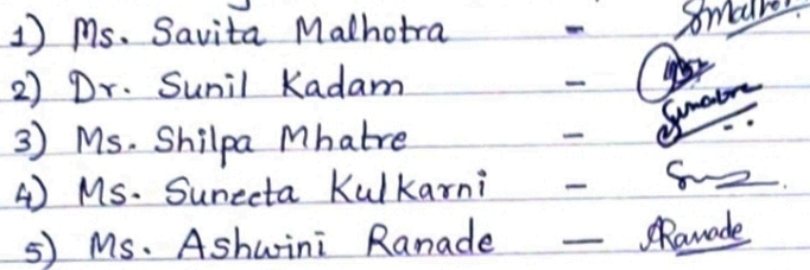 1) Ms. Savita Malhotra - SMalhotra
2) Dr. Sunil Kadam -
3) Ms. Shilpa Mhatre - Smhatre
4) Ms. Suneeta Kulkarni -
5) Ms. Ashwini Ranade - ARanade